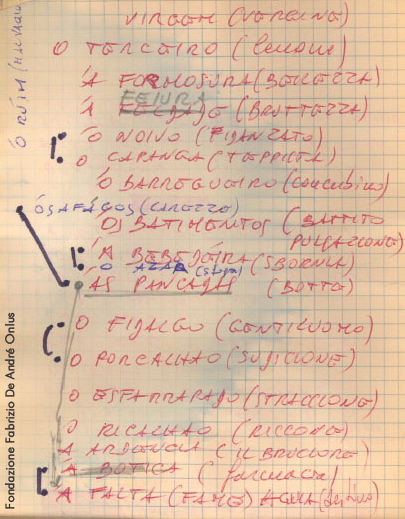 VIRGEM (VERGINE)
O TERCEIRO (lenone)
Á FORMOSURA (BELLEZZA)
FEIURA
Á FEALDADE (BRUTTEZZA)
Ó NOIVO (FIDANZATO)
O CAPANGA (TEPPISTA)
Ó BARREGUEIRO (concubino)
ÓS AFÁGOS (CAREZZE)
ÓS BATIMENTOS (BATTITO
PULSAZIONE)
Á BEBEDEIRA (SBORNIA)
O AZAR (sfiga)
ÁS PANCADAS (BOTTE)
O FIDALGO (GENTILUOMO)
O PORCALHAO (SUDICIONE)
O ESFARRAPADO (STRACCIONE)
O RICALHAO (RICCONE)
Á ARDENCIA (IL BRUCIORE)
Á BOTICA (farmacia)
Á FALTA (FAME)
Ó RÚIM (MALVAGIO
Fondazione Fabrizio De André Onlus